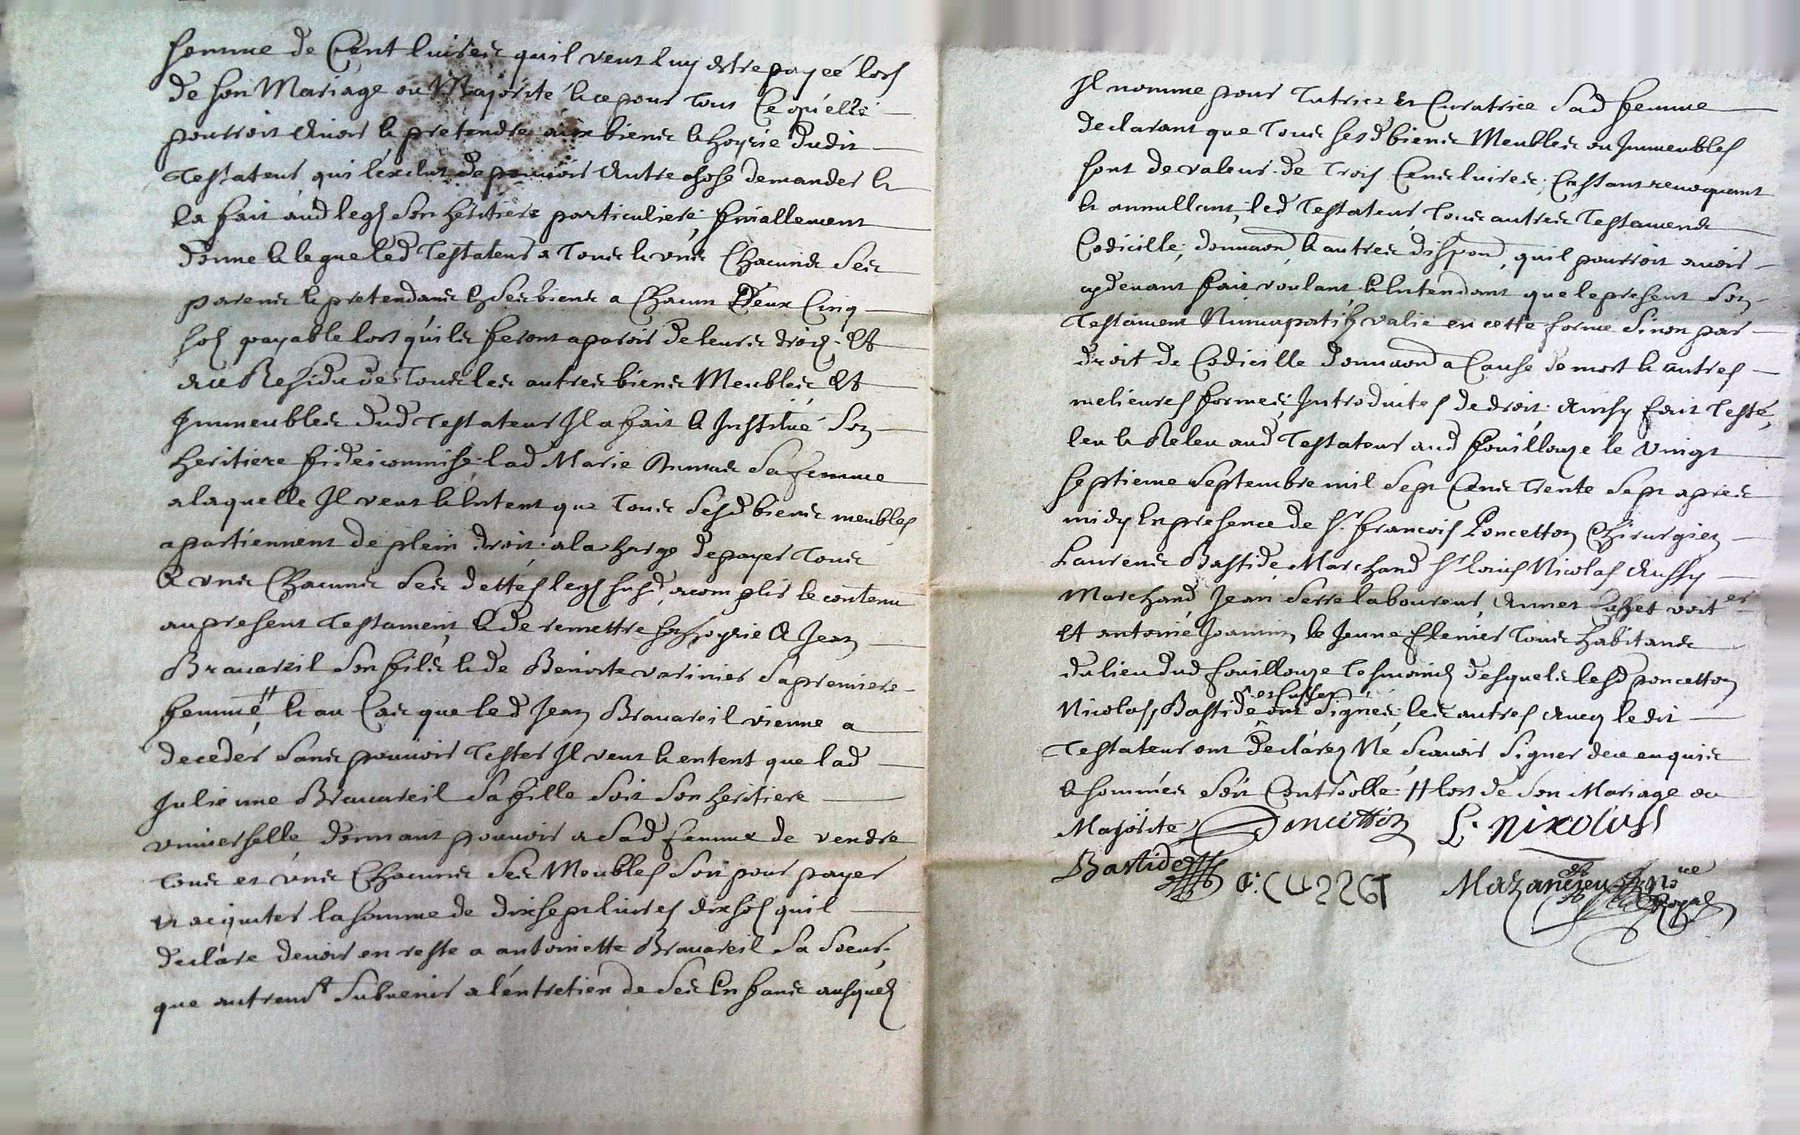 somme de Cent livres quil veut luy estre payeé lors
de son Mariage ou Majorité & ce pour tout Ce quelle
pourroit avoir & pretendre aux biens & hoyrie dudit
Testateur qui lexclut de pouvoir Autre chose demander &
la fait aud legs son héritiere particuliere; finallement
donne & legue led Testateur a Tous & uns Chacuns ses
parents & pretendants En ses biens a Chacun D'eux Cinq
sols payable lors quils feront aparoir de leurs droits. Et
au Residu de Tous les autres biens Meubles Et
Immeubles dud Testateur Il a fait & Institué Son
heritiere fideicommise lad Marie sa femme
a laquelle Il veut & Entent que Tous sesd biens meubles
apartiennent de plein droit a la charge de payer Tous
& uns Chacuns ses dettes legs susd acomplir le contenu
au present Testament, & de remettre son hoyrie A Jean
Bravareil son fils & de Benoite varinier sa premiere
femme ⧺, & au Cas que led Jean Bravareil vienne a
deceder sans pouvoir Tester Il veut & entent que lad
Julienne Bravareil sa fille soit son heritiere
universelle, donnant pouvoir a sad femme de vendre
Tous et uns Chacuns ses Meubles soit pour payer
et aquiter la somme de dixsept livres dix sols quil
declare devoir en reste a antoinette Bravareil sa soeur,
que autremt subvenir a lentretien de ses Enfants ausquels
Il nomme pour Tutrice Et Curatrice sad femme
declarant que Tous sesd biens Meubles ou Immeubles
sont de valeur de Trois Cens livres. Cassant revoquant
& annullant, led Testateur, Tous autres Testaments
Codicille, donnaon, & autres dispon, quil pourroit avoir
cydevant fait voulant & Entendant que le present son
Testament Nuncupatif valie en cette forme sinon par
droit de Codicille donnaon a Cause de mort & autres
melieures formes Introduites de droit, Ainsy fait Testé,
leu & Releu aud Testateur aud fouillouze le vingt
septieme septembre mil sept Cens Trente sept apres
midy En presence de Sr. francois Poncetton Chirurgien
Laurens Bastide Marchand Sr louis Nicolas Aussy
Marchand, Jean Serre laboureur, Annet voiter
Et antoine Joannin le Jeune Tous habitants
du lieu dud fouillouze Tesmoins desquels lesd poncetton
Nicolas, Bastide ont signés, les autres Avec ledit
Testateur ont declarez Ne scavoir signer de ce enquis
& sommés soit Controollé ⧺ lors de son Mariage ou
Majorite, Poncetton L. Nixolas
Bastide Mazancieu Nore
Royal